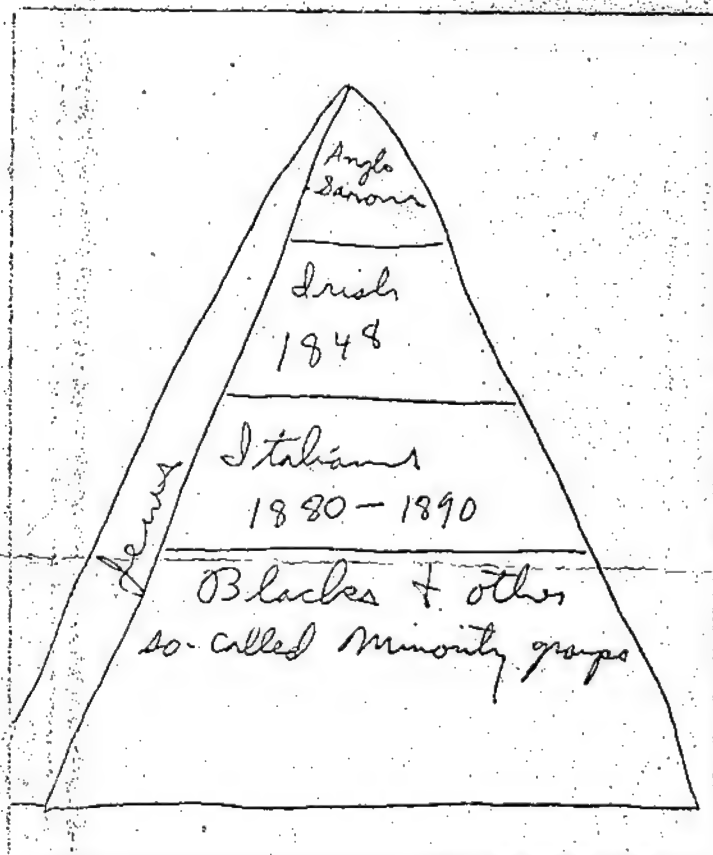 Anglo
Saxons
Irish
1848
Italians
1880-1890
Jews
Blacks & other
so-called minority groups